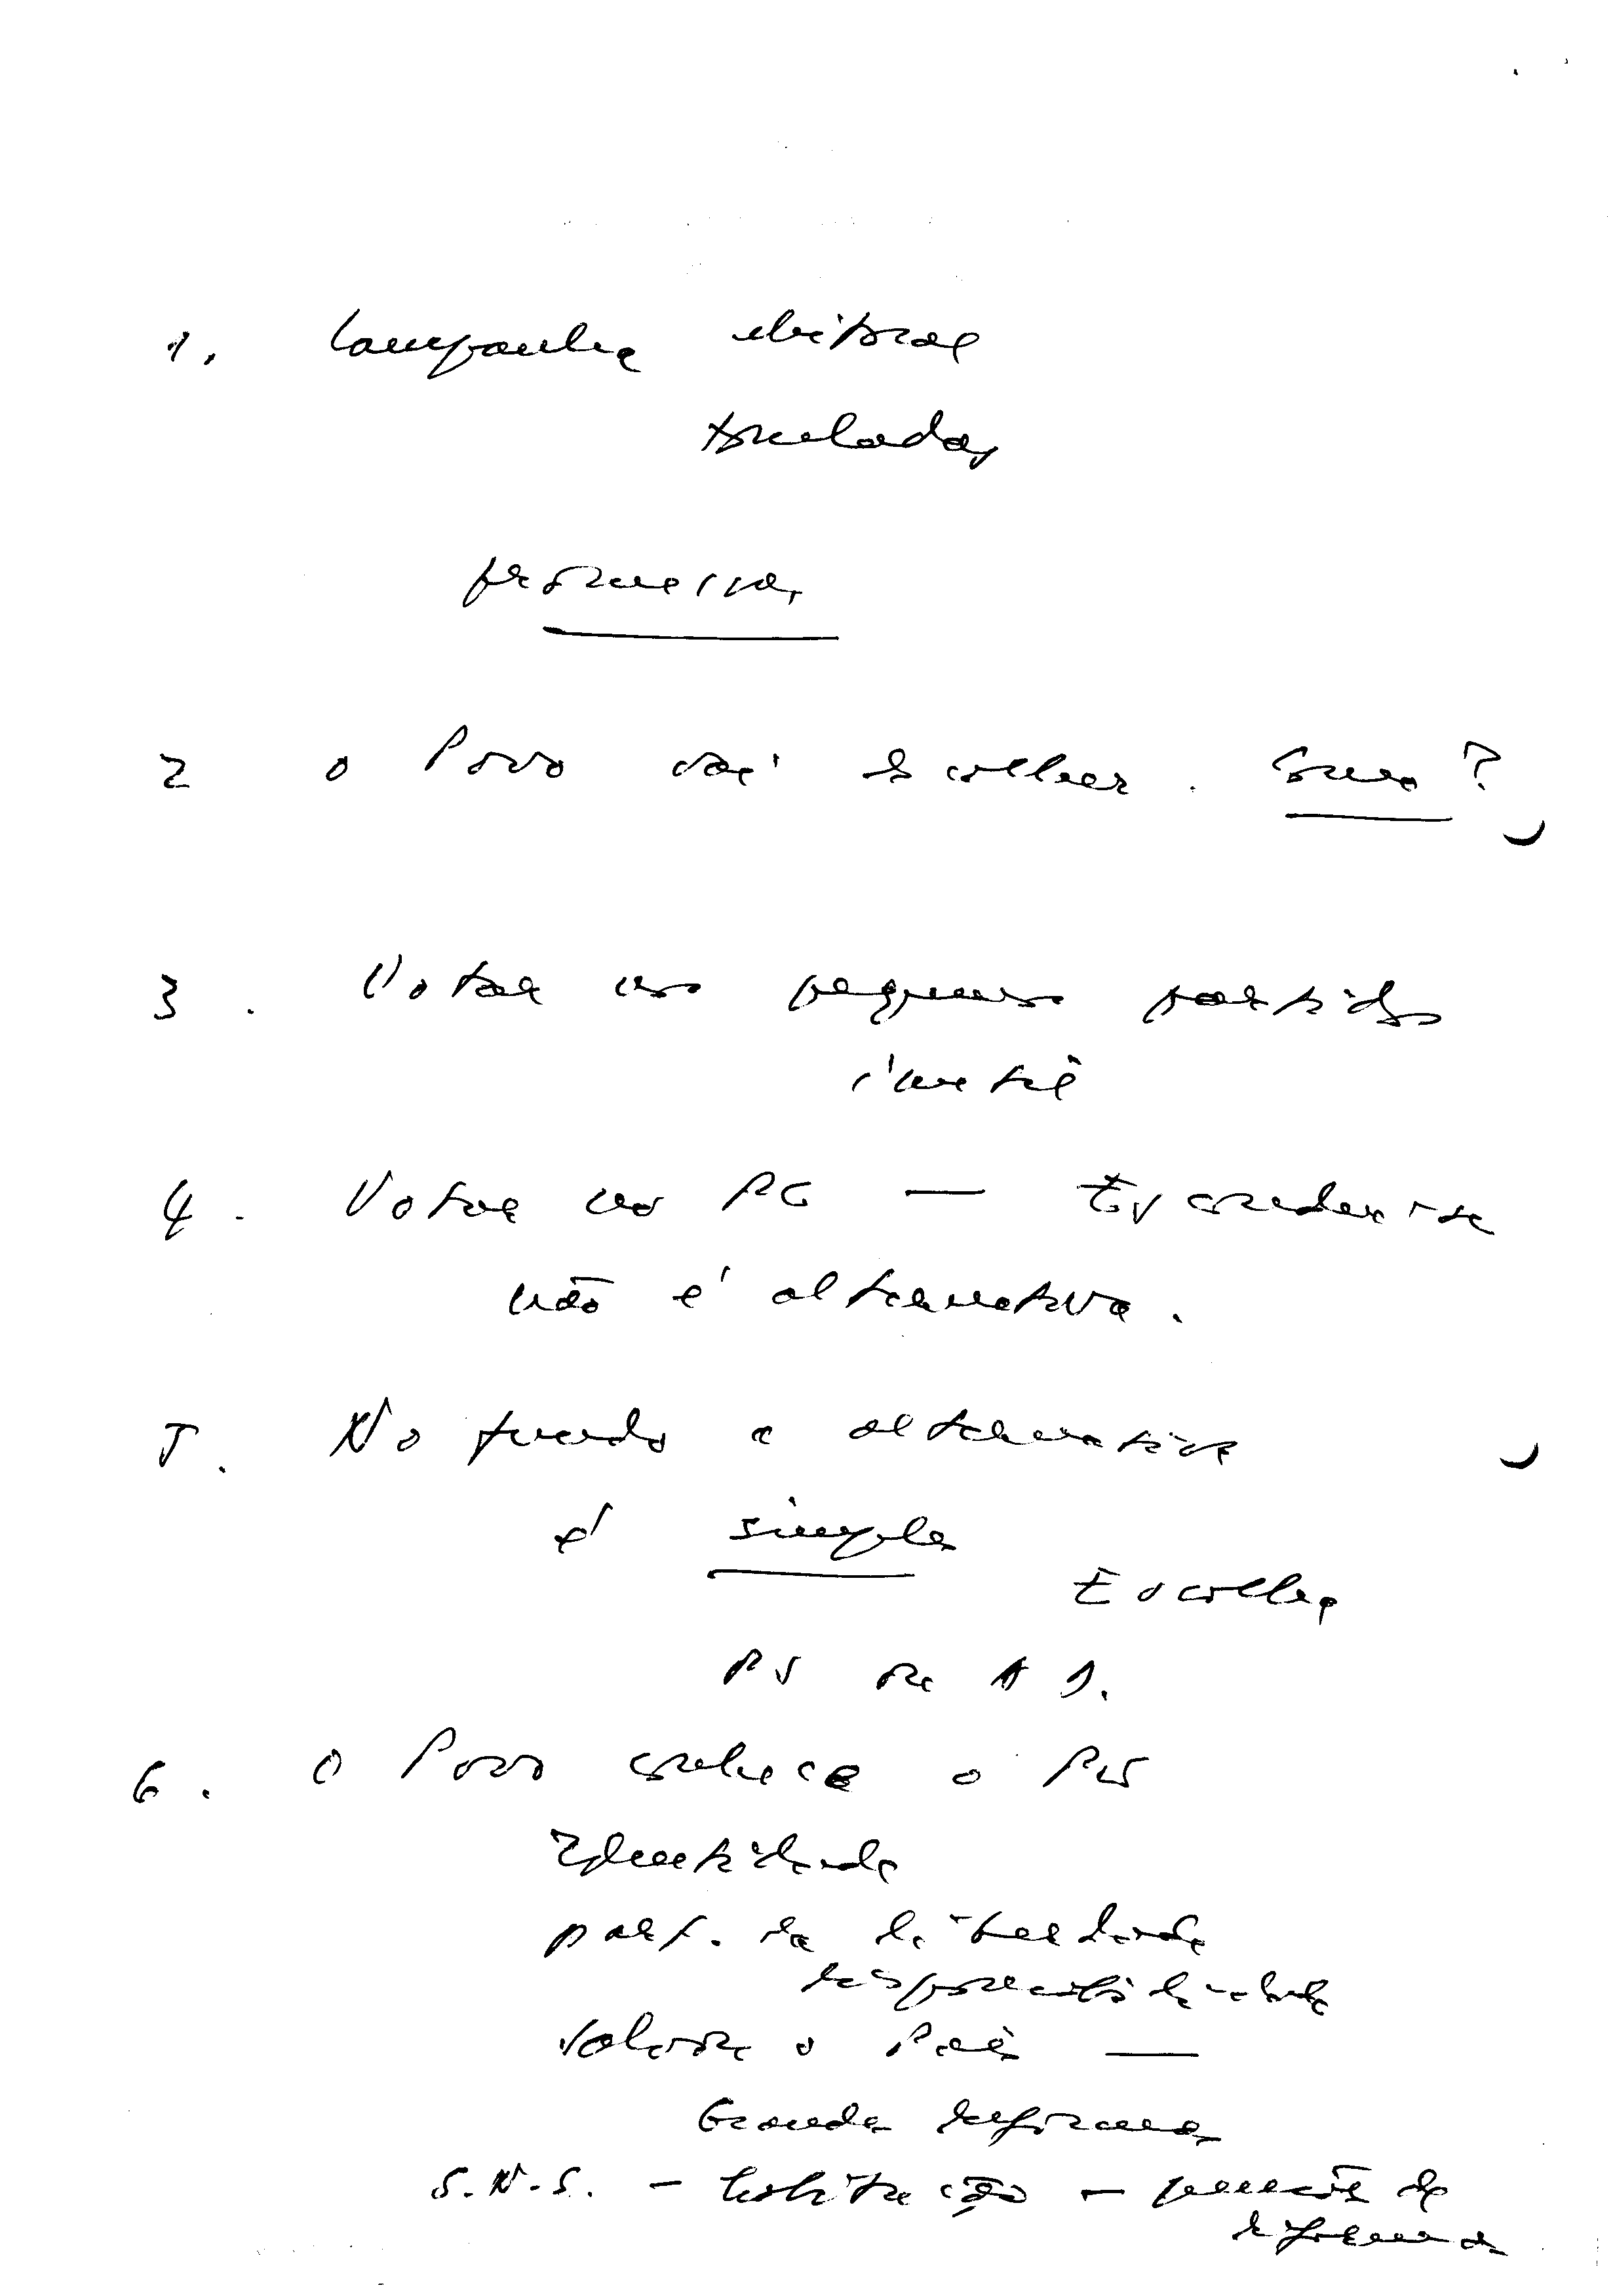 1. Campanha eleitoral
toneladas
promessas
2 o Povo vai escolher. Como?
3. Votar nos pequenos partidos
inútil
4. Votar no PC — Esconder-se
não é alternativa.
5. No fundo a alternativa
é simples
Escolha
PS ou AD.
6. O Povo conhece o PS
Identidade
part. da liberdade
responsabilidade
o País —
Grandes reformas
S.N.S. — Constituição — pensões de
reforma